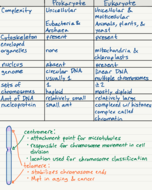 Prokaryote Eukaryote
Complexity Unicellular Unicellular & multicellular
Eubacteria & Archaea Animals, plants, & yeast
Cytoskeleton present present
enveloped organelles none mitochondria & chloroplasts
nucleus absent present
genome circular DNA linear DNA
usually 1 multiple chromosomes
sets of chromosomes 1 ≥2
haploid mostly diploid
Amt of DNA relatively small relatively large
nucleoprotein small amt complexed w/ histones
complex called chromatin
centromere:
attachment point for microtubules
responsible for chromosome movement in cell division
location used for chromosome classification
telomere:
stabilizes chromosome ends
in aging & cancer